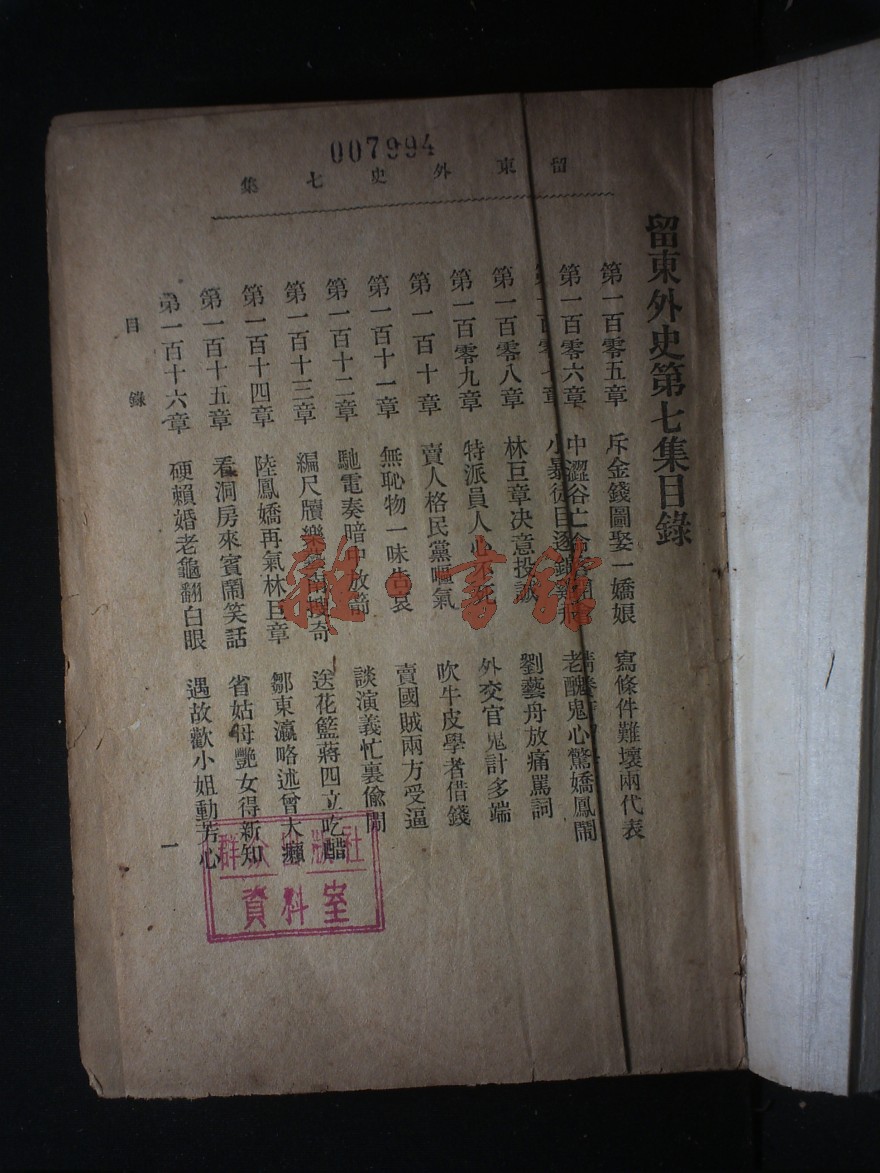 007994
留東外史七集
留東外史第七集目錄
第一百零五章 斥金錢圖娶一嬌娘 寫條件難壞兩代表
第一百零六章 中澀谷亡命 老醜鬼心驚嬌鳳鬧
小暴徒目逐
第一百零八章 林巨章決意投誠 劉藝舟放痛罵詞
第一百零九章 特派員人心不死 外交官鬼計多端
第一百十章 賣人格民黨嘔氣 吹牛皮學者借錢
第一百十一章 無恥物一味告哀 賣國賊兩方受逼
第一百十二章 馳電奏暗中放箭 談演義忙裏偷閒
第一百十三章 編尺牘樂 搜奇 送花籃蔣四立吃醋
第一百十四章 陸鳳嬌再氣林巨章 鄒東瀛略述曾大癲
第一百十五章 看洞房來賓鬧笑話 省姑母艷女得新知
第一百十六章 硬賴婚老龜翻白眼 遇故歡小姐動芳心
目錄
一
雜·書館
群众出版社
資料室